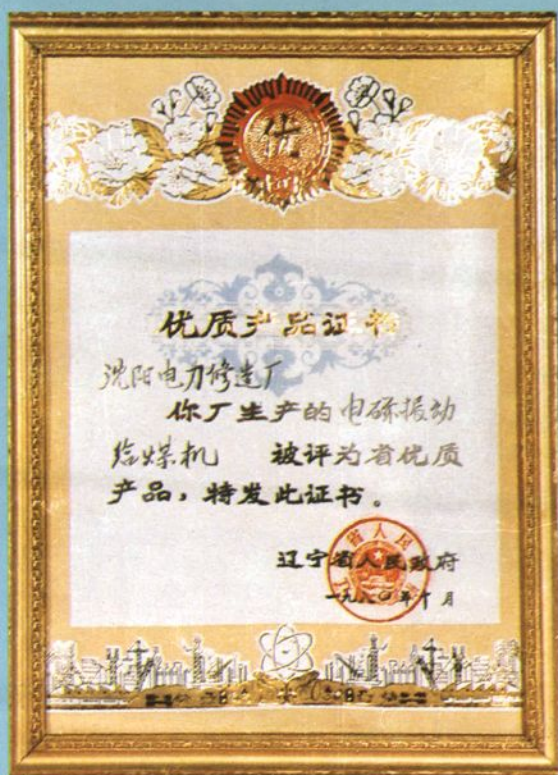 优
优质产品证书
沈阳电力修造厂
你厂生产的电磁振动
给煤机 被评为省优质
产品，特发此证书。
辽宁省人民政府
一九八〇年十月